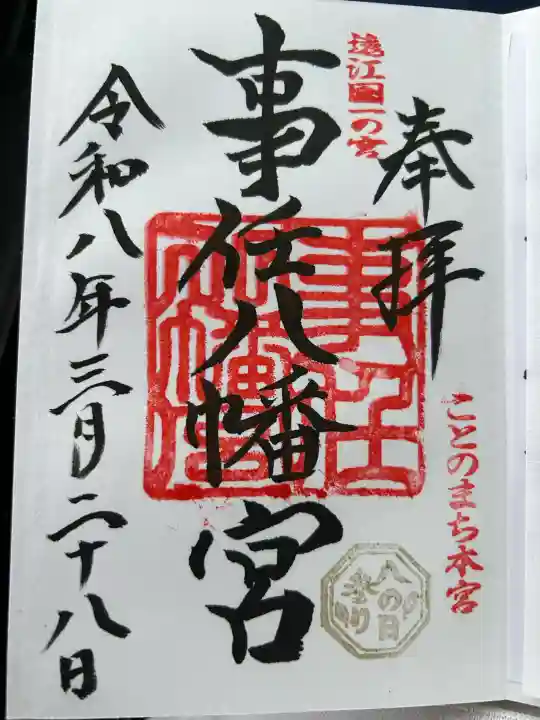 奉拝
ことのまち本宮
遠江国一の宮
事任八幡宮
事任
八幡宮
八の日
参り
令和八年三月二十八日